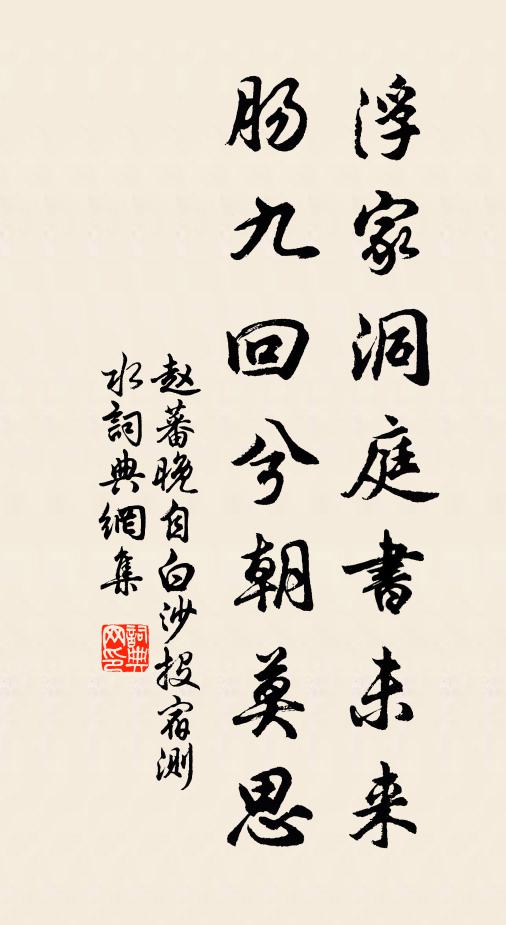 浮家洞庭書未来
肠九回兮朝莫思
赵蕃晚自白沙投宿测
水詞典網集
詞典网印